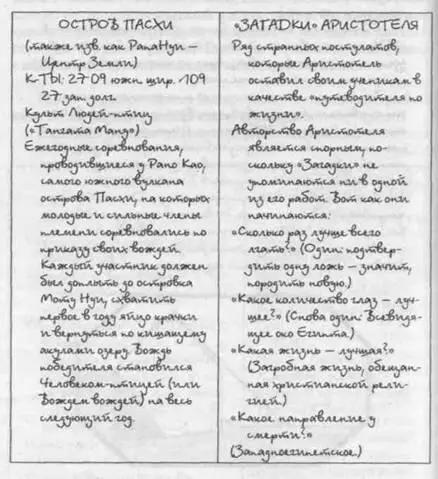 ОСТРОВ ПАСХИ
(также изв. как РапаНуи —
Центр Земли)
К-ТЫ: 27 09 южн. шир. 109
27 зап. долг.
Культ Людей-птиц
(«Тангата Ману»)
Ежегодные соревнования,
проводившиеся у Рано Као,
самого южного вулкана
острова Пасхи, на которых
молодые и сильные члены
племени соревновались по
приказу своих вождей.
Каждый участник должен
был доплыть до островка
Моту Нуи, схватить
первое в году яйцо крачки
и вернуться по кишащему
акулами озеру. Вождь
победителя становился
Человеком-птицей (или
Вождем вождей) на весь
следующий год.
«ЗАГАДКИ» АРИСТОТЕЛЯ
Ряд странных постулатов,
которые Аристотель
оставил своим ученикам в
качестве «путеводителя по
жизни».
Авторство Аристотеля
является спорным, по-
скольку «Загадки» не
упоминаются ни в одной
из его работ. Вот как они
начинаются:
«Сколько раз лучше всего
лгать?» (Один: подтвер-
дить одну ложь — значит,
породить новую.)
«Какое количество глаз — луч-
шее?» (Снова один: Всевидя-
щее око Египта.)
«Какая жизнь — лучшая?»
(Загробная жизнь, обещан-
ная христианской рели-
гией.)
«Какое направление у
смерти?»
(Западноегипетское.)